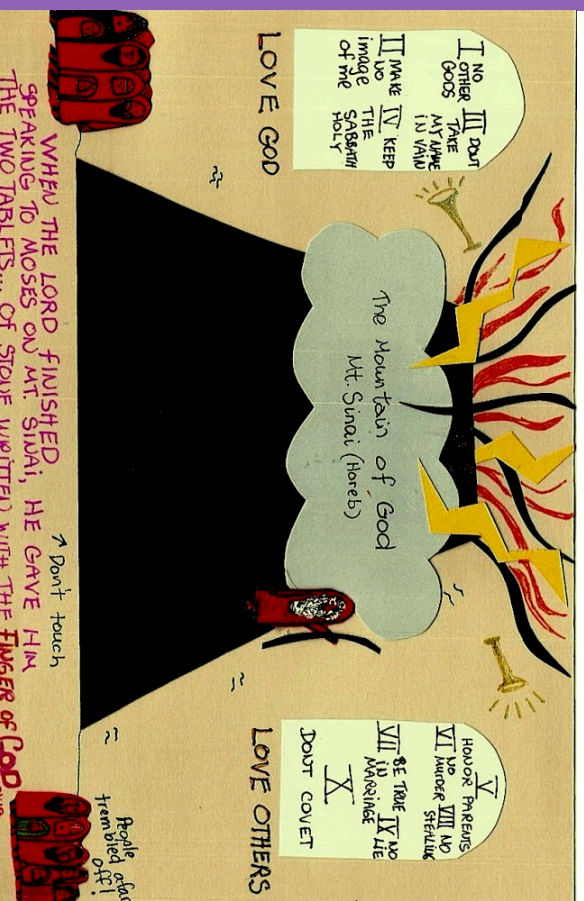 I NO
OTHER
GODS
III DONT
TAKE
MY NAME
IN VAIN
II MAKE
NO
image
of me
IV KEEP
THE
SABBATH
HOLY
LOVE GOD
The Mountain of God
Mt. Sinai (Horeb)
V
HONOR PARENTS
VI NO
MURDER
VIII NO
STEALING
VII BE TRUE
IN
MARRIAGE
IX NO
LIE
X
DONT COVET
LOVE OTHERS
People
trembled afar
off!
↑ Don't touch
WHEN THE LORD FINISHED
SPEAKING TO MOSES ON MT. SINAI, HE GAVE HIM
THE TWO TABLETS... OF STONE WRITTEN WITH THE FINGER OF GOD